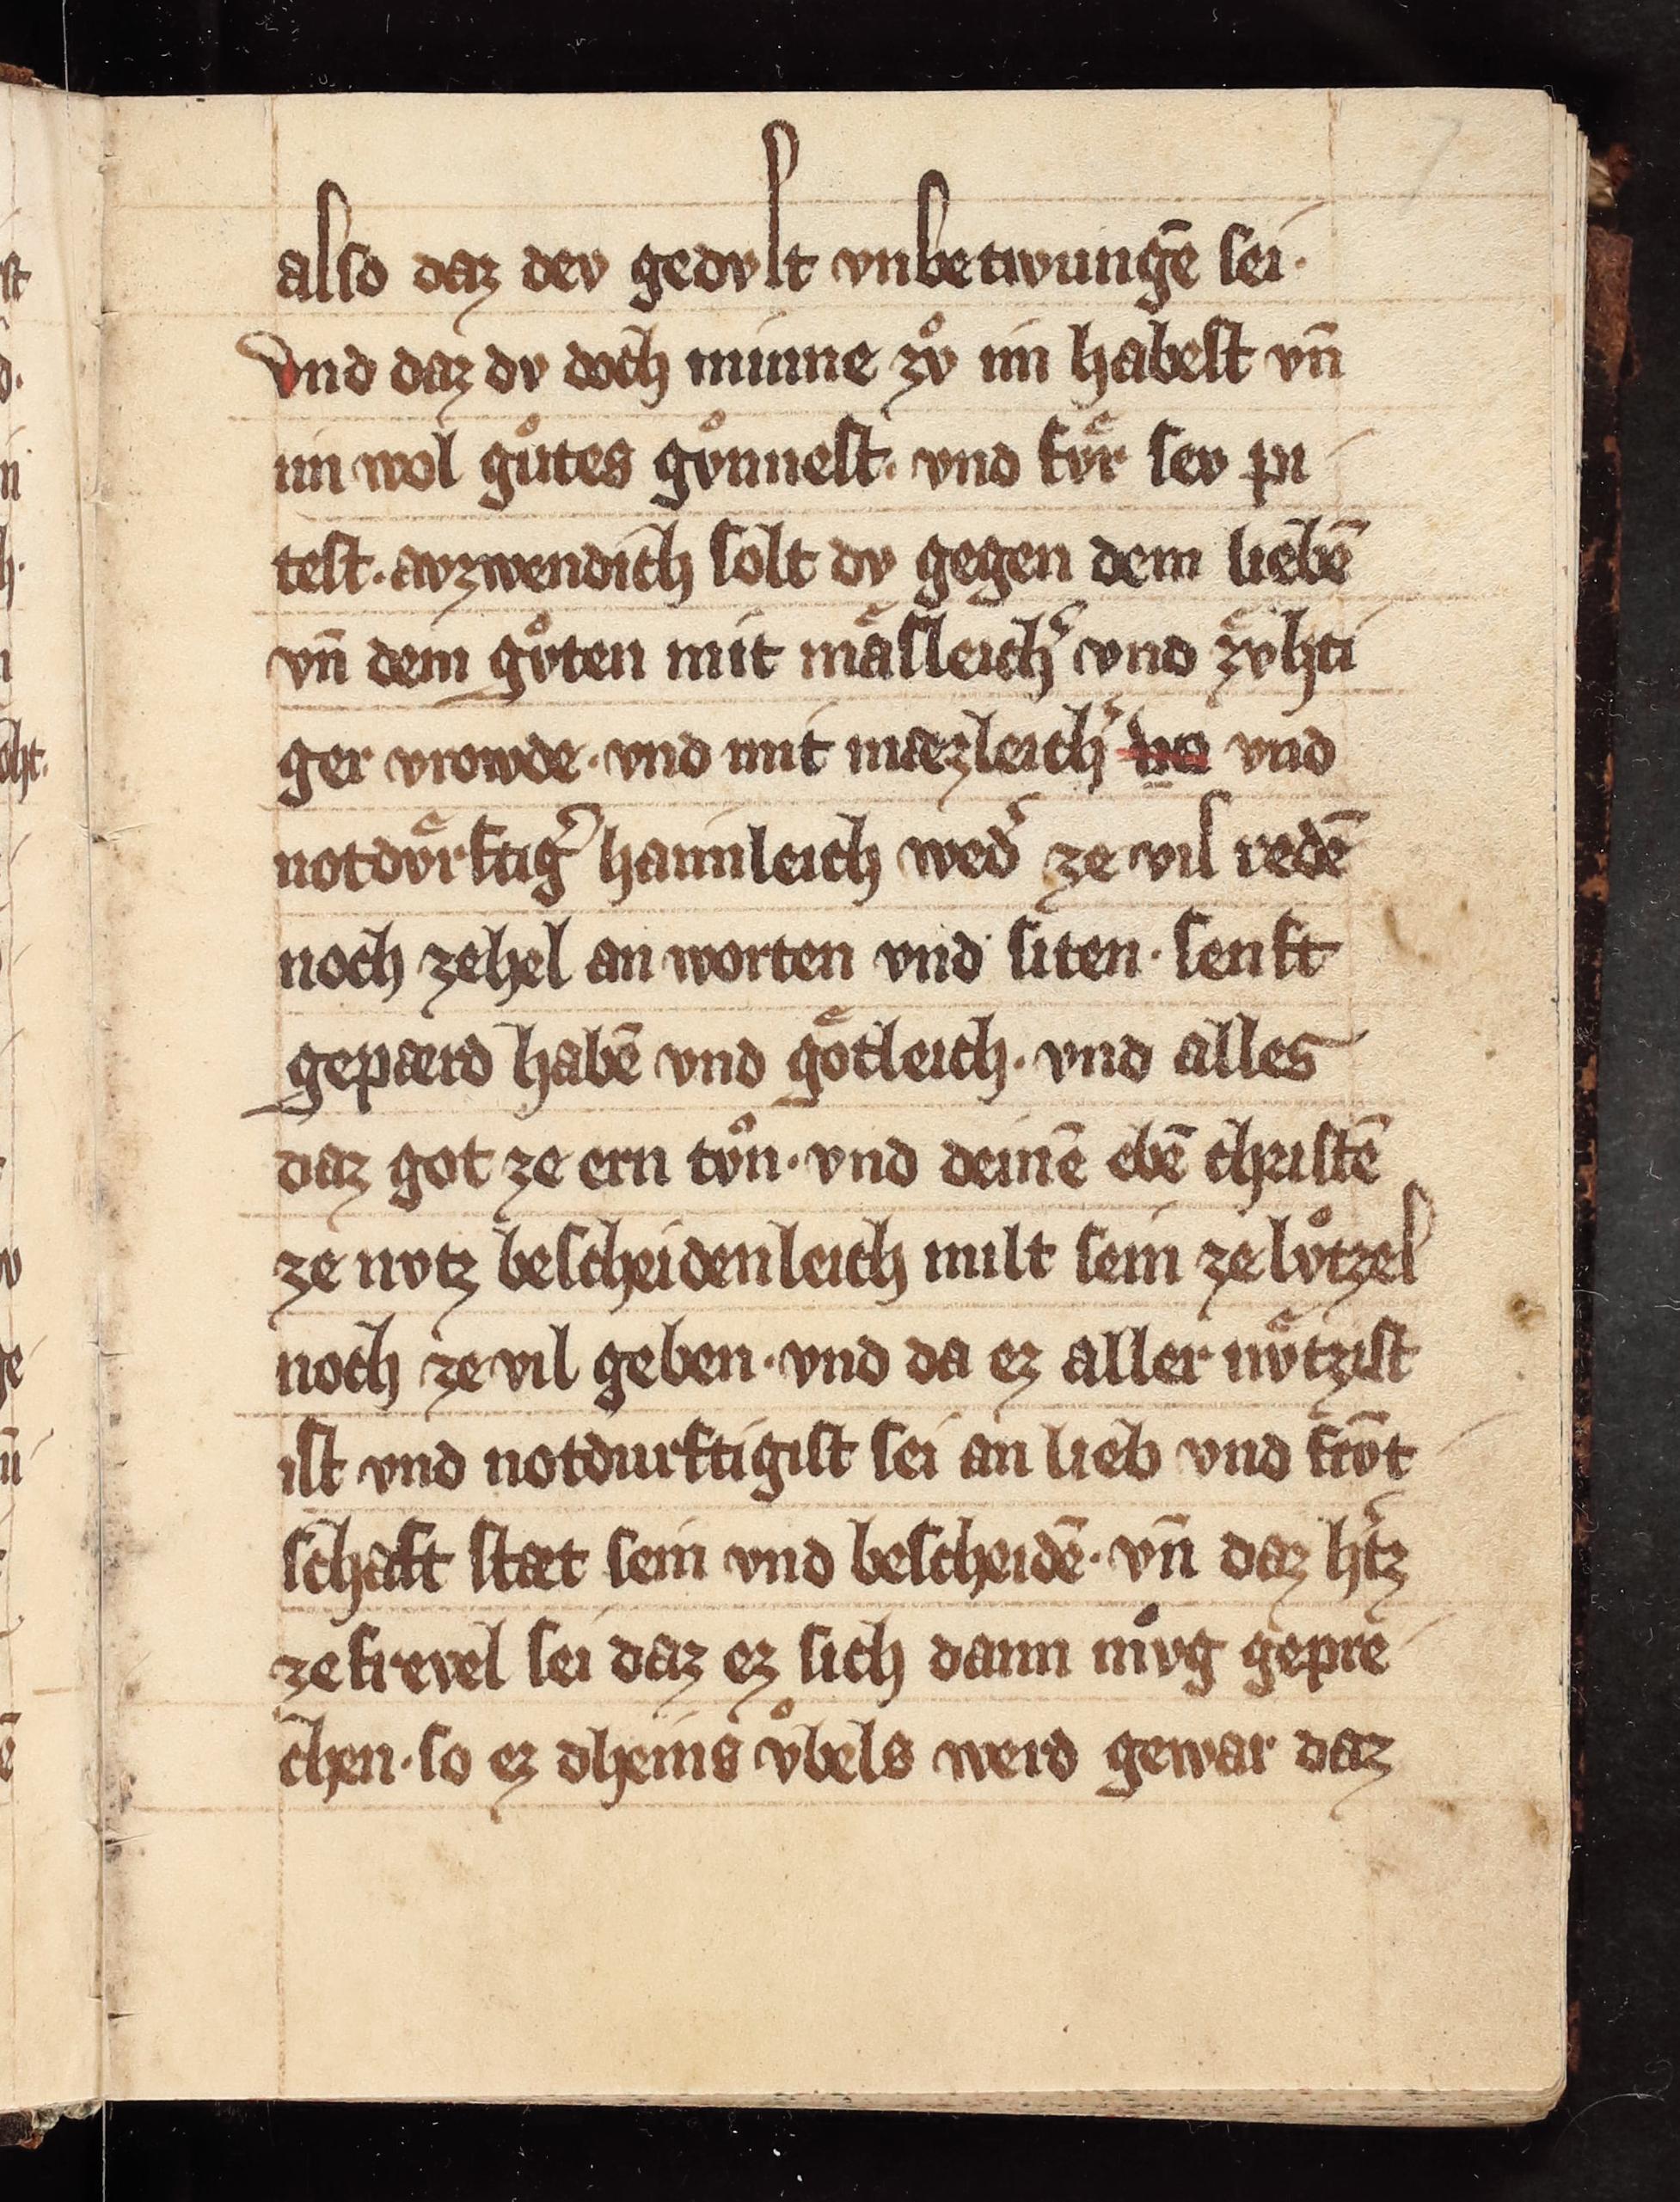 also daz dev gedvlt vnbetwungē sei·
Vnd daz dv doch minne zvͦ im habest vn̄
im wol guͦtes gvͦnnest· vnd fvͤr sev pi
test· avzwendich solt dv gegen dem liebē
vn̄ dem gvͦten mit maͤsleichˀ vnd zvͤhti
ger vrowde· vnd mit maezleichˀ vnd
notdvͤrftigˀ haimleich wedˀ ze vil redē
noch zehel an worten vnd siten· senft
gepaerd habē vnd goͤtleich· vnd alles
daz got ze ern tvͦn· vnd deinē ebē christē
ze nvtz bescheidenleich milt sein ze lvͦtzel
noch ze vil geben· vnd da ez aller nvͤtzist
ist vnd notdurftigist sei an lieb vnd frv̄t
schaft staet sein vnd bescheidē· vn̄ daz hˀtz
ze frevel sei daz ez sich dann mvͦg gepre
chen· so ez dheins vͦbels werd gewar daz